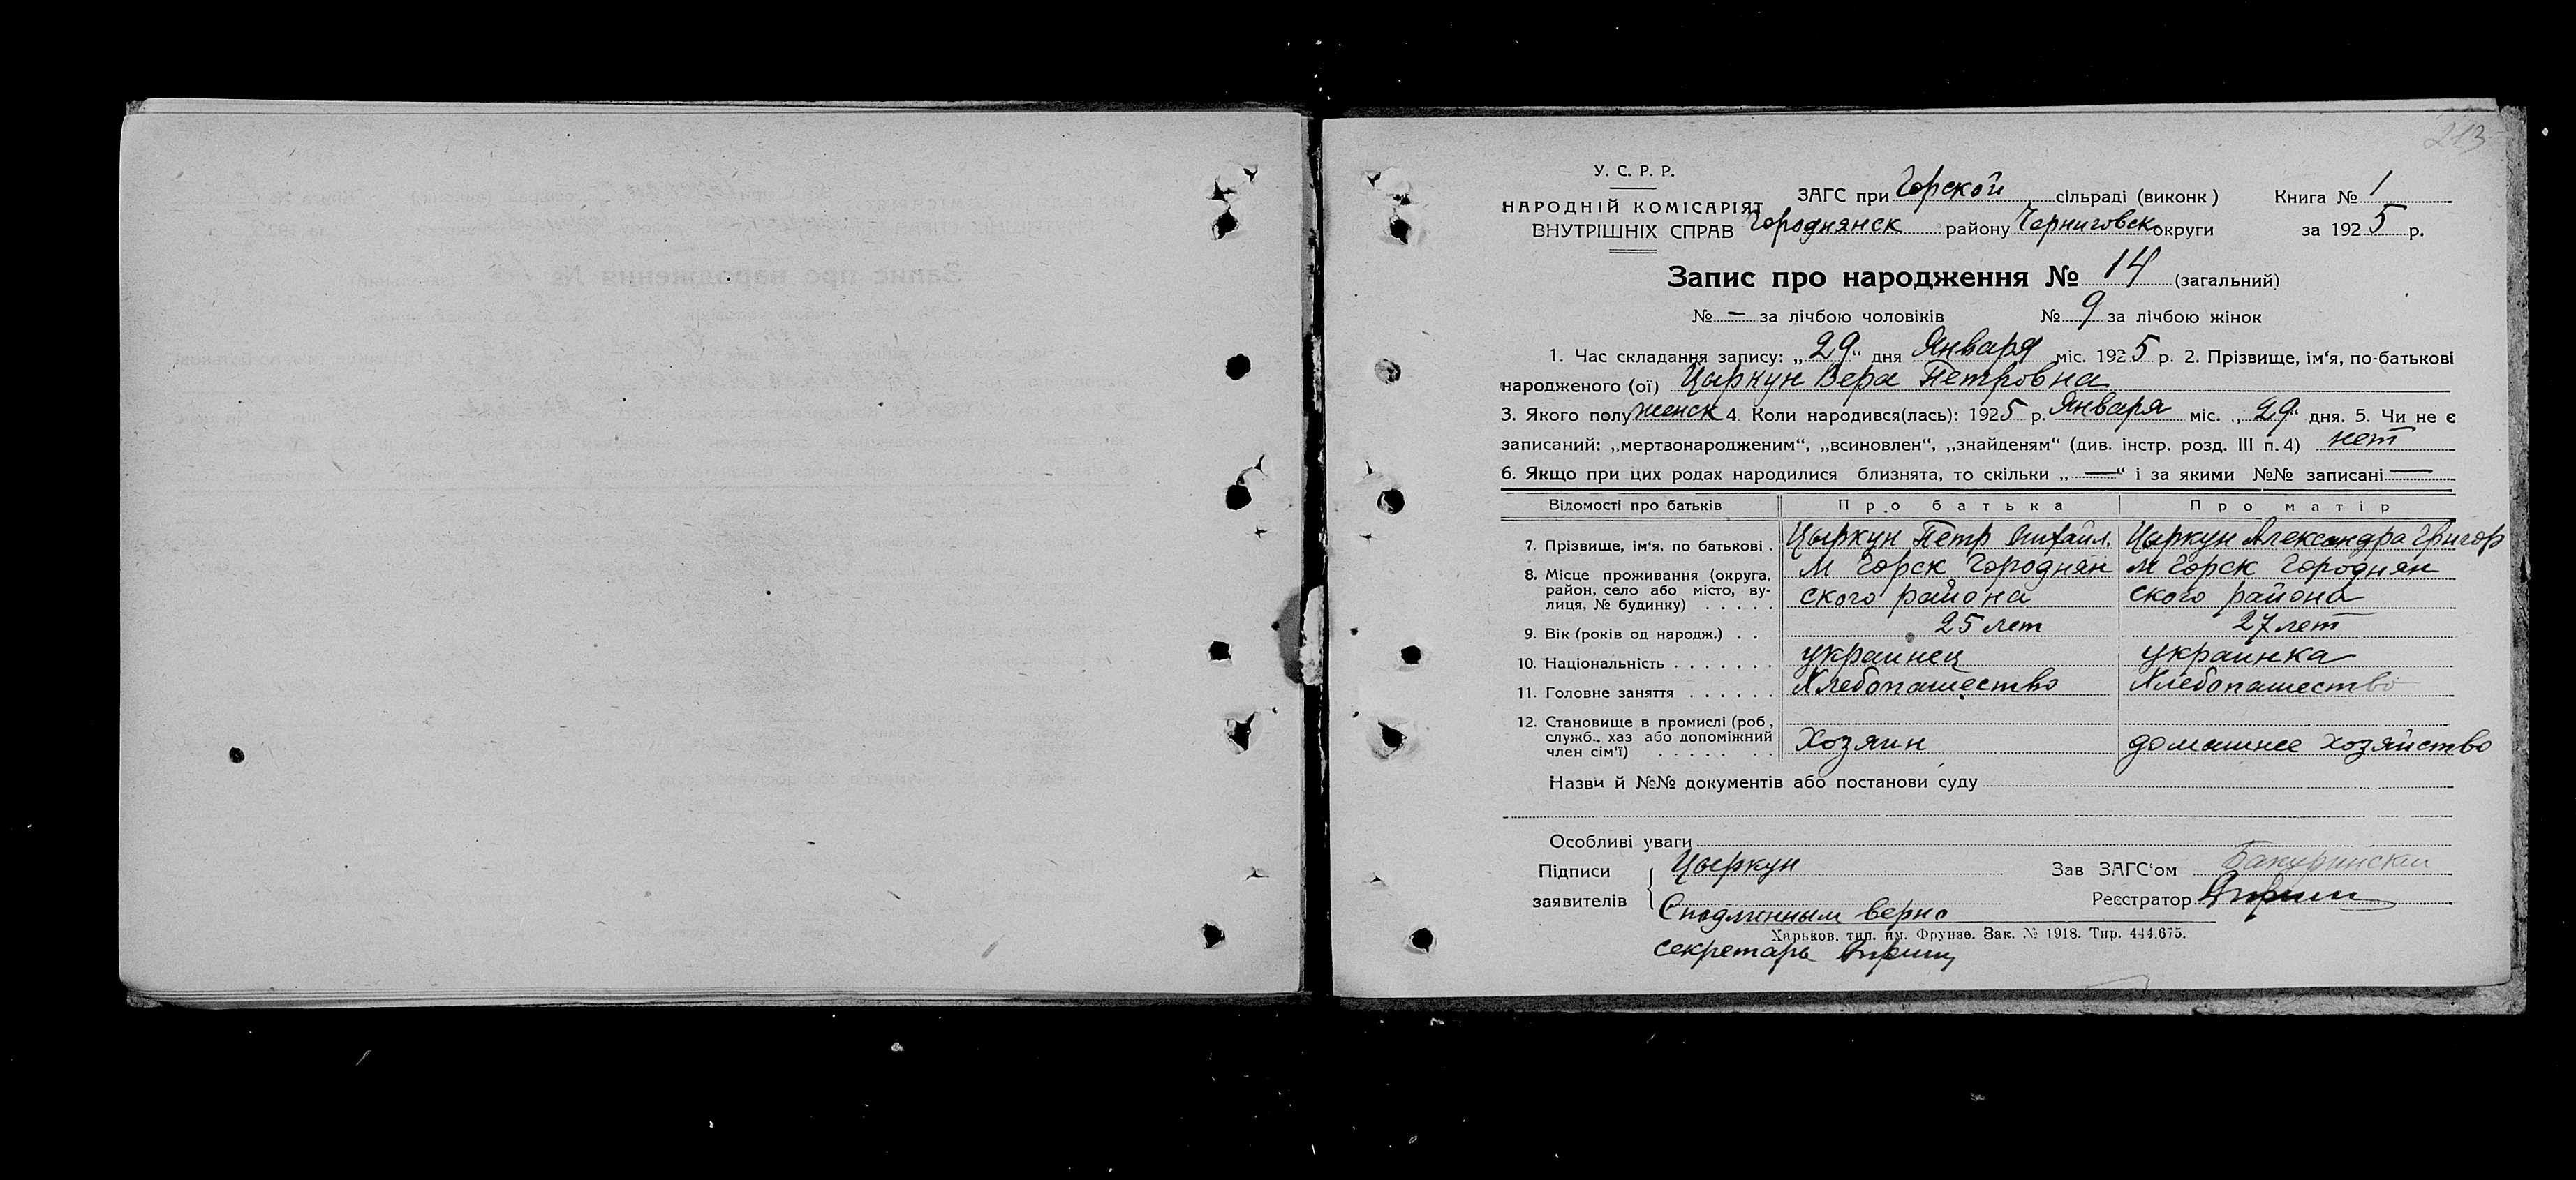 213
У. С. Р. Р.
НАРОДНІЙ КОМІСАРІЯТ
ВНУТРІШНІХ СПРАВ
ЗАГС при Горской сільраді (виконк) Книга № 1
Городнянск району Черниговск округи за 1925 р.
Запис про народження № 14 (загальний)
№ — за лічбою чоловіків № 9 за лічбою жінок
1. Час складання запису: „29" дня Января міс. 1925 р. 2. Прізвище, ім'я, по-батькові
народженого (ої) Цыркун Вера Петровна
3. Якого полу женск 4. Коли народився(лась): 1925 р. Января міс. „29" дня. 5. Чи не є
записаний: „мертвонародженим", „всиновлен", „знайденям" (див. інстр. розд. III п. 4) нет
6. Якщо при цих родах народилися близнята, то скільки „—" і за якими №№ записані —
Відомості про батьків Про батька Про матір
7. Прізвище, ім'я, по батькові . Цыркун Петр Михайл. Цыркун Александра Григор
8. Місце проживання (округа, район, село або місто, ву- лиця, № будинку) . . . . . М Горск Городнян ского района М Горск Городнян ского района
9. Вік (років од народж.) . . 25 лет 27 лет
10. Національність . . . . . . . украинец украинка
11. Головне заняття . . . . . . Хлебопашество Хлебопашество
12. Становище в промислі (роб, служб., хаз або допоміжний член сім'ї) . . . . . . . Хозяин домашнее хозяйство
Назви й №№ документів або постанови суду
Особливі уваги
Підписи заявителів Цыркун Зав ЗАГС'ом
Реєстратор
С подлинным верно
Харьков, тип. им. Фрунзе. Зак. № 1918. Тир. 444.675.
секретарь